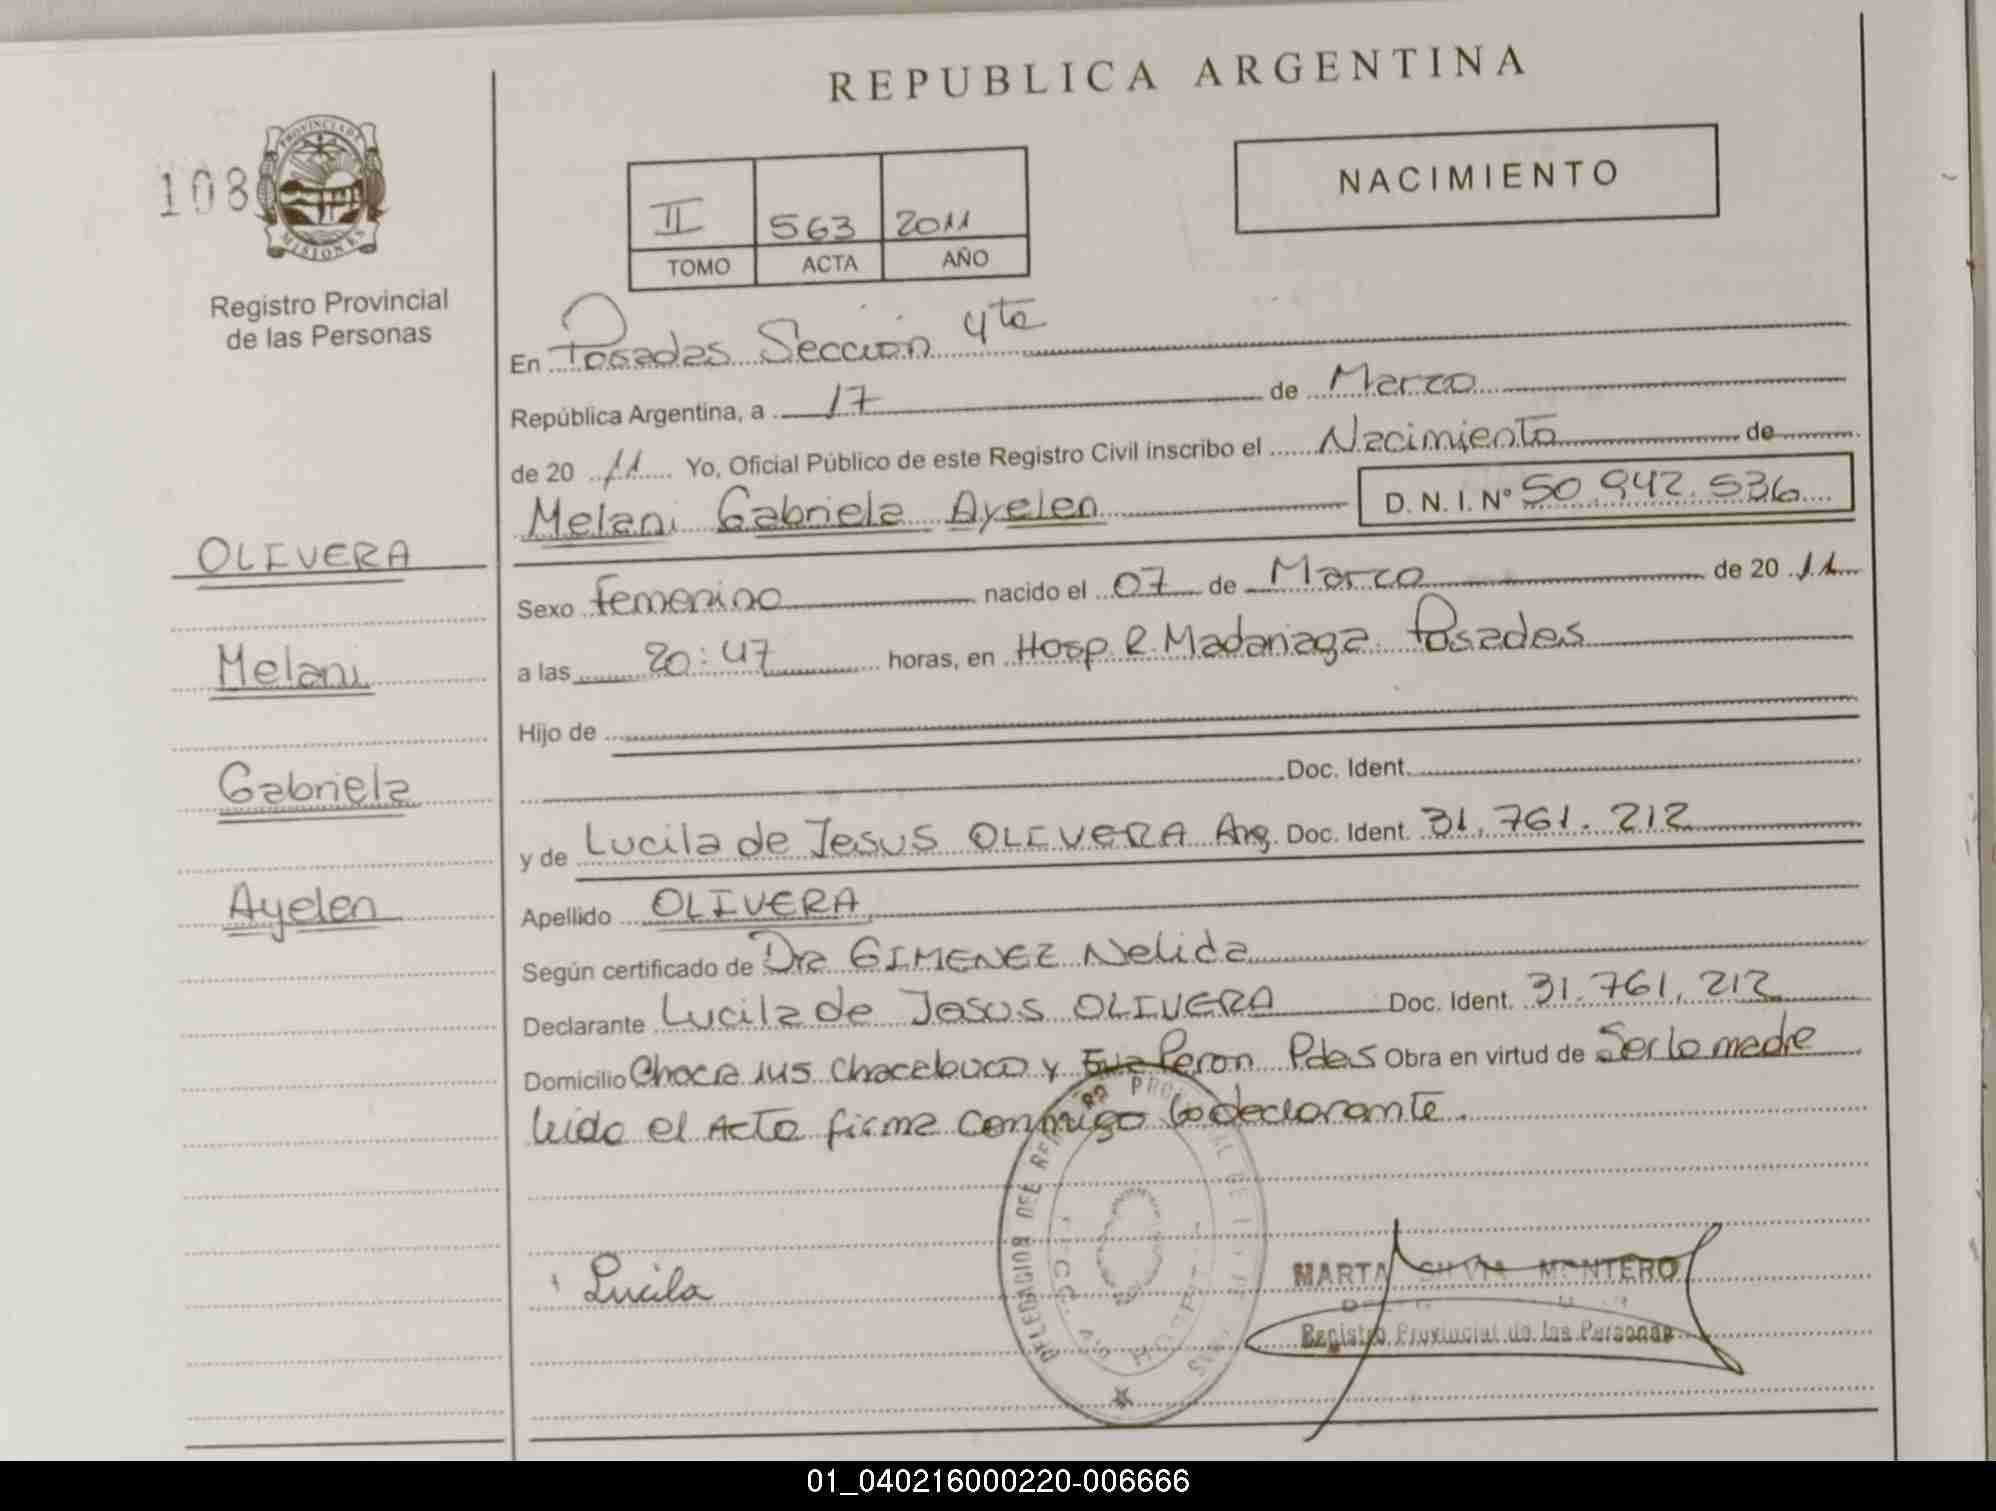 REPUBLICA ARGENTINA
108
PROVINCIA DE
MISIONES
Registro Provincial
de las Personas
II 563 2011
TOMO ACTA AÑO
NACIMIENTO
En Posadas Sección 4ta
República Argentina, a 17 de Marzo
de 20 11 Yo, Oficial Público de este Registro Civil inscribo el Nacimiento de
Melani Gabriela Ayelen D. N. I. N° 50.942.536
OLIVERA
Melani
Gabriela
Ayelen
Sexo femenino nacido el 07 de Marzo de 20 11
a las 20:47 horas, en Hosp. R. Madariaga. Posadas
Hijo de
Doc. Ident.
y de Lucila de Jesus OLIVERA Arg. Doc. Ident. 31.761.212
Apellido OLIVERA
Según certificado de Dra GIMENEZ Nelida
Declarante Lucila de Jesus OLIVERA Doc. Ident. 31.761.212
Domicilio Chacra 145 Chacabuco y Eva Peron Pdas Obra en virtud de Ser la madre
leido el Acta firma conmigo la declarante.
Lucila
MARTA SILVIA MONTERO
Registro Provincial de las Personas
01_040216000220-006666